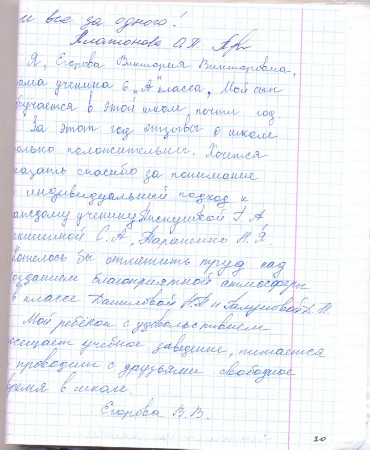 и все за одного!
Платонова О.П.
Я, Егорова Виктория Викторовна,
ама ученика 6 „А" класса. Мой сын
бучается в этой школе почти год.
За этот год отзывы о школе
олько положительны. Хочется
казать спасибо за понимание
индивидуальный подход к
аждому ученику Г.А
С.А, Тараненко Н.Я.
отелось бы отметить труд над
озданием благоприятной атмосферы
в классе Даниловой Н.П и Л.Н.
Мой ребёнок с удовольствием
осещает учебное заведение, питается
проводит с друзьями свободное
время в школе.
Егорова В.В.
20